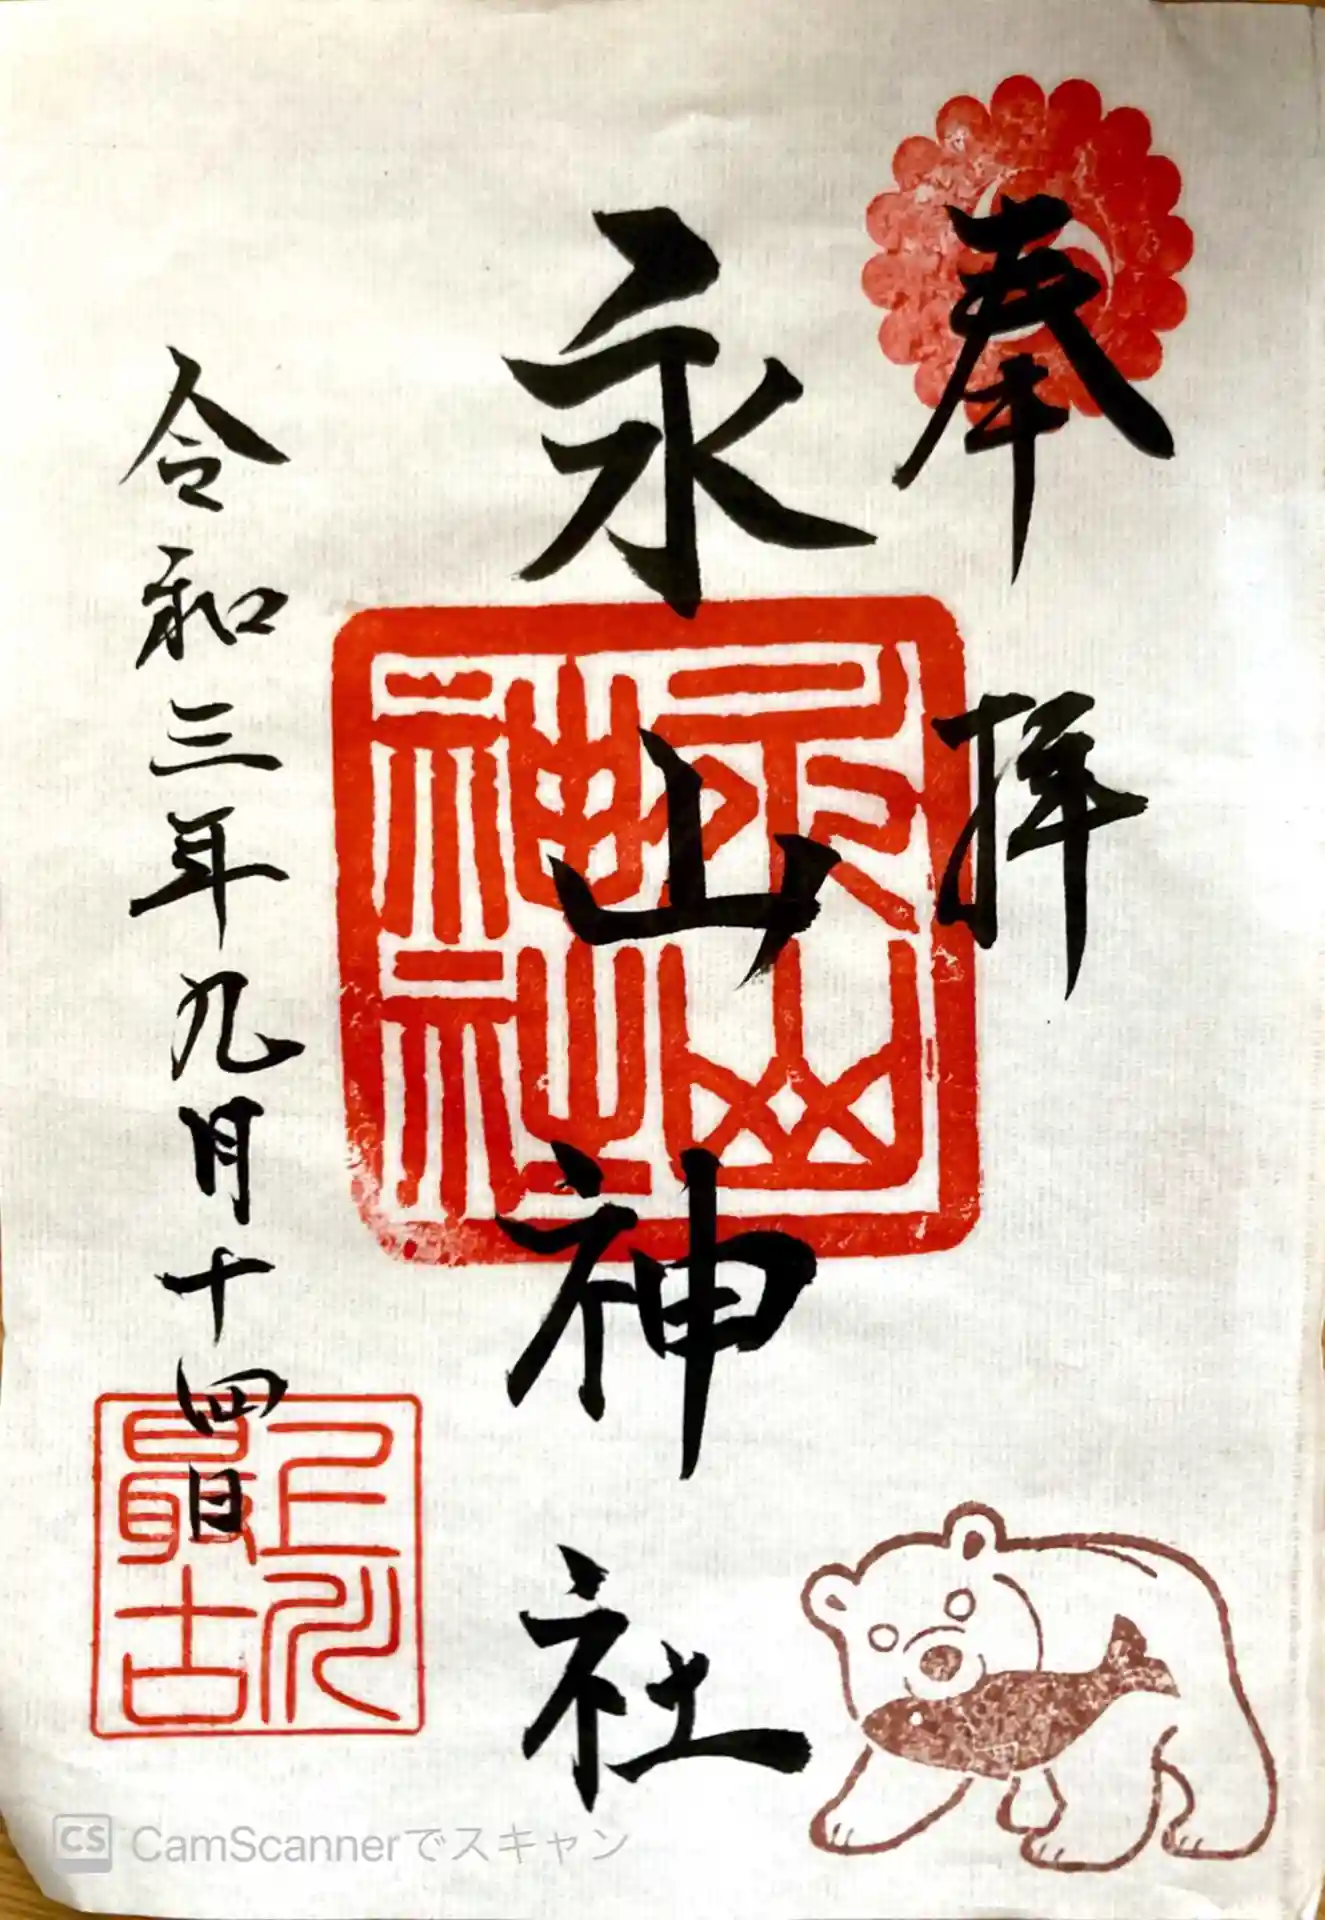 奉拝
永山神社
永山
神社
令和三年九月十四日
上川
最古
CS CamScannerでスキャン